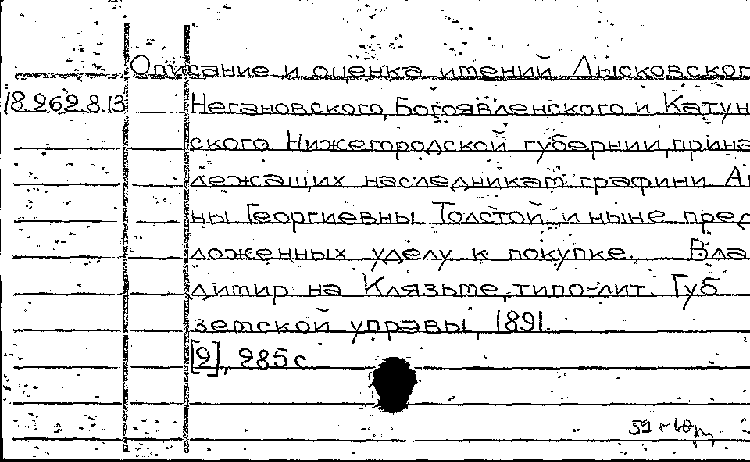 Описание и оценка имений Лысковског
18.262.8.13 Негановского, Богоявленского и Катун
ского Нижегородской губернии, прина
лежащих наследникам графини Ан
ны Георгиевны Толстой и ныне пред
ложенных уделу к покупке. Вла
димир на Клязьме, типо-лит. Губ
земской управы, 1891.
[2], 285 с